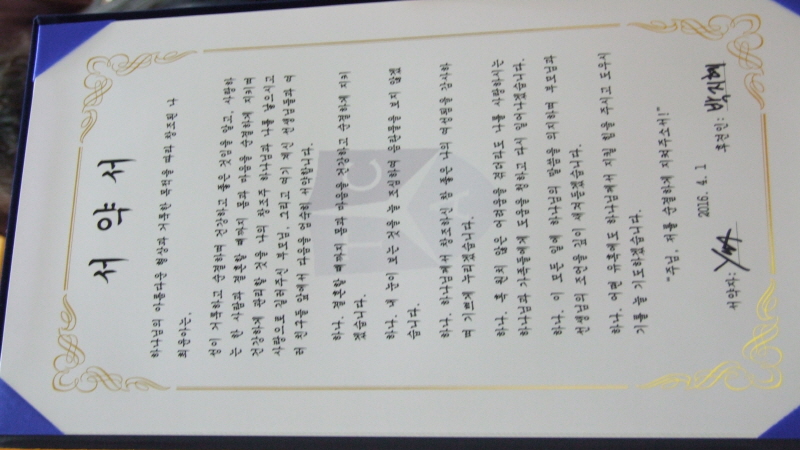 서 약 서
하나님의 아름다운 형상과 거룩한 목적을 따라 창조된 나
최윤아는,
성이 거룩하고 순결하며 건강하고 좋은 것임을 알고, 사랑하
는 한 사람과 결혼할 때까지 몸과 마음을 순결하게 지키며
건강하게 관리할 것을 나의 창조주 하나님과 나를 낳으시고
사랑으로 길러주신 부모님, 그리고 여기 계신 선생님들과 여
러 친구들 앞에서 다음을 엄숙히 서약합니다.
하나. 결혼할 때까지 몸과 마음을 건강하고 순결하게 지키
겠습니다.
하나. 내 눈이 보는 것을 늘 조심하여 음란물을 보지 않겠
습니다.
하나. 하나님께서 창조하신 참 좋은 나의 여성됨을 감사하
며 기쁘게 누리겠습니다.
하나. 혹 원치 않은 어려움을 겪더라도 나를 사랑하시는
하나님과 가족들에게 도움을 청하고 다시 일어나겠습니다.
하나. 이 모든 일에 하나님의 말씀을 의지하며 부모님과
선생님의 조언을 깊이 새겨듣겠습니다.
하나. 어떤 유혹에도 하나님께서 지킬 힘을 주시고 도우시
기를 늘 기도하겠습니다.
"주님, 저를 순결하게 지켜주소서!"
2016. 4. 1
서약자: 후견인: 박지혜